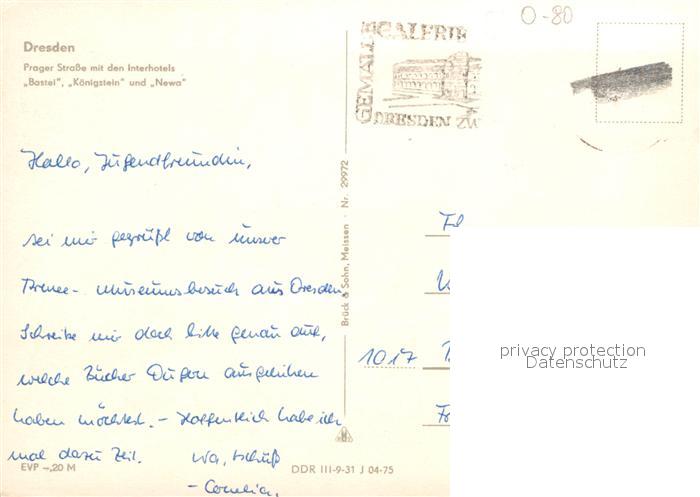 Dresden
Prager Straße mit den Interhotels
„Bastei", „Königstein" und „Newa"
O-80
GEMÄLDEGALERIE
DRESDEN ZW
Hallo, Jugendfreundin,
sei mir gegrüßt von unser
Armee-Museumsbesuch aus Dresden.
Schreibe mir doch bitte genau auf,
welche Bücher ausgeliehen
haben möchtest. – Hoffentlich habe ich
mal dazu Zeit. Na, tschüß
– Cornelia.
Brück & Sohn, Meissen · Nr. 29972
1017
EVP –,20 M
DDR III-9-31 J 04-75
privacy protection
Datenschutz